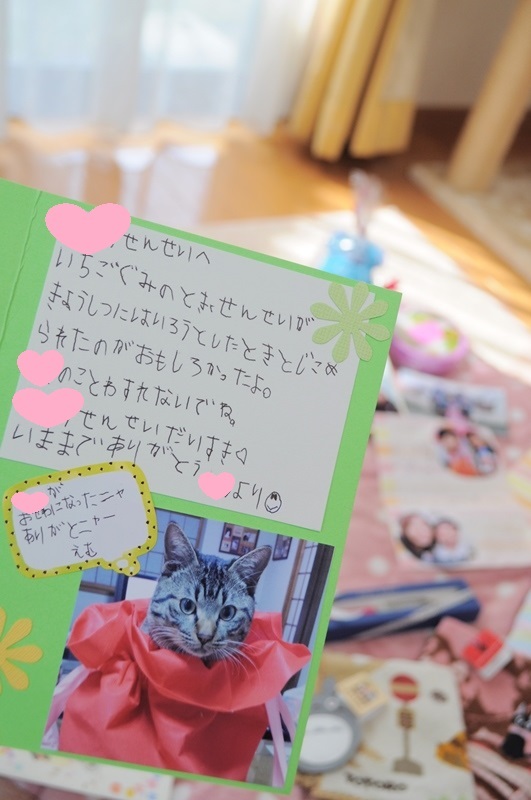 せんせいへ
いちごぐみのときせんせいが
きょうしつにはいろうとしたときとじこめ
られたのがおもしろかったよ。
のことわすれないでね。
せんせいだいすき♡
いままでありがとう
より☺
が
おせわになったニャ
ありがとニャー
えむ